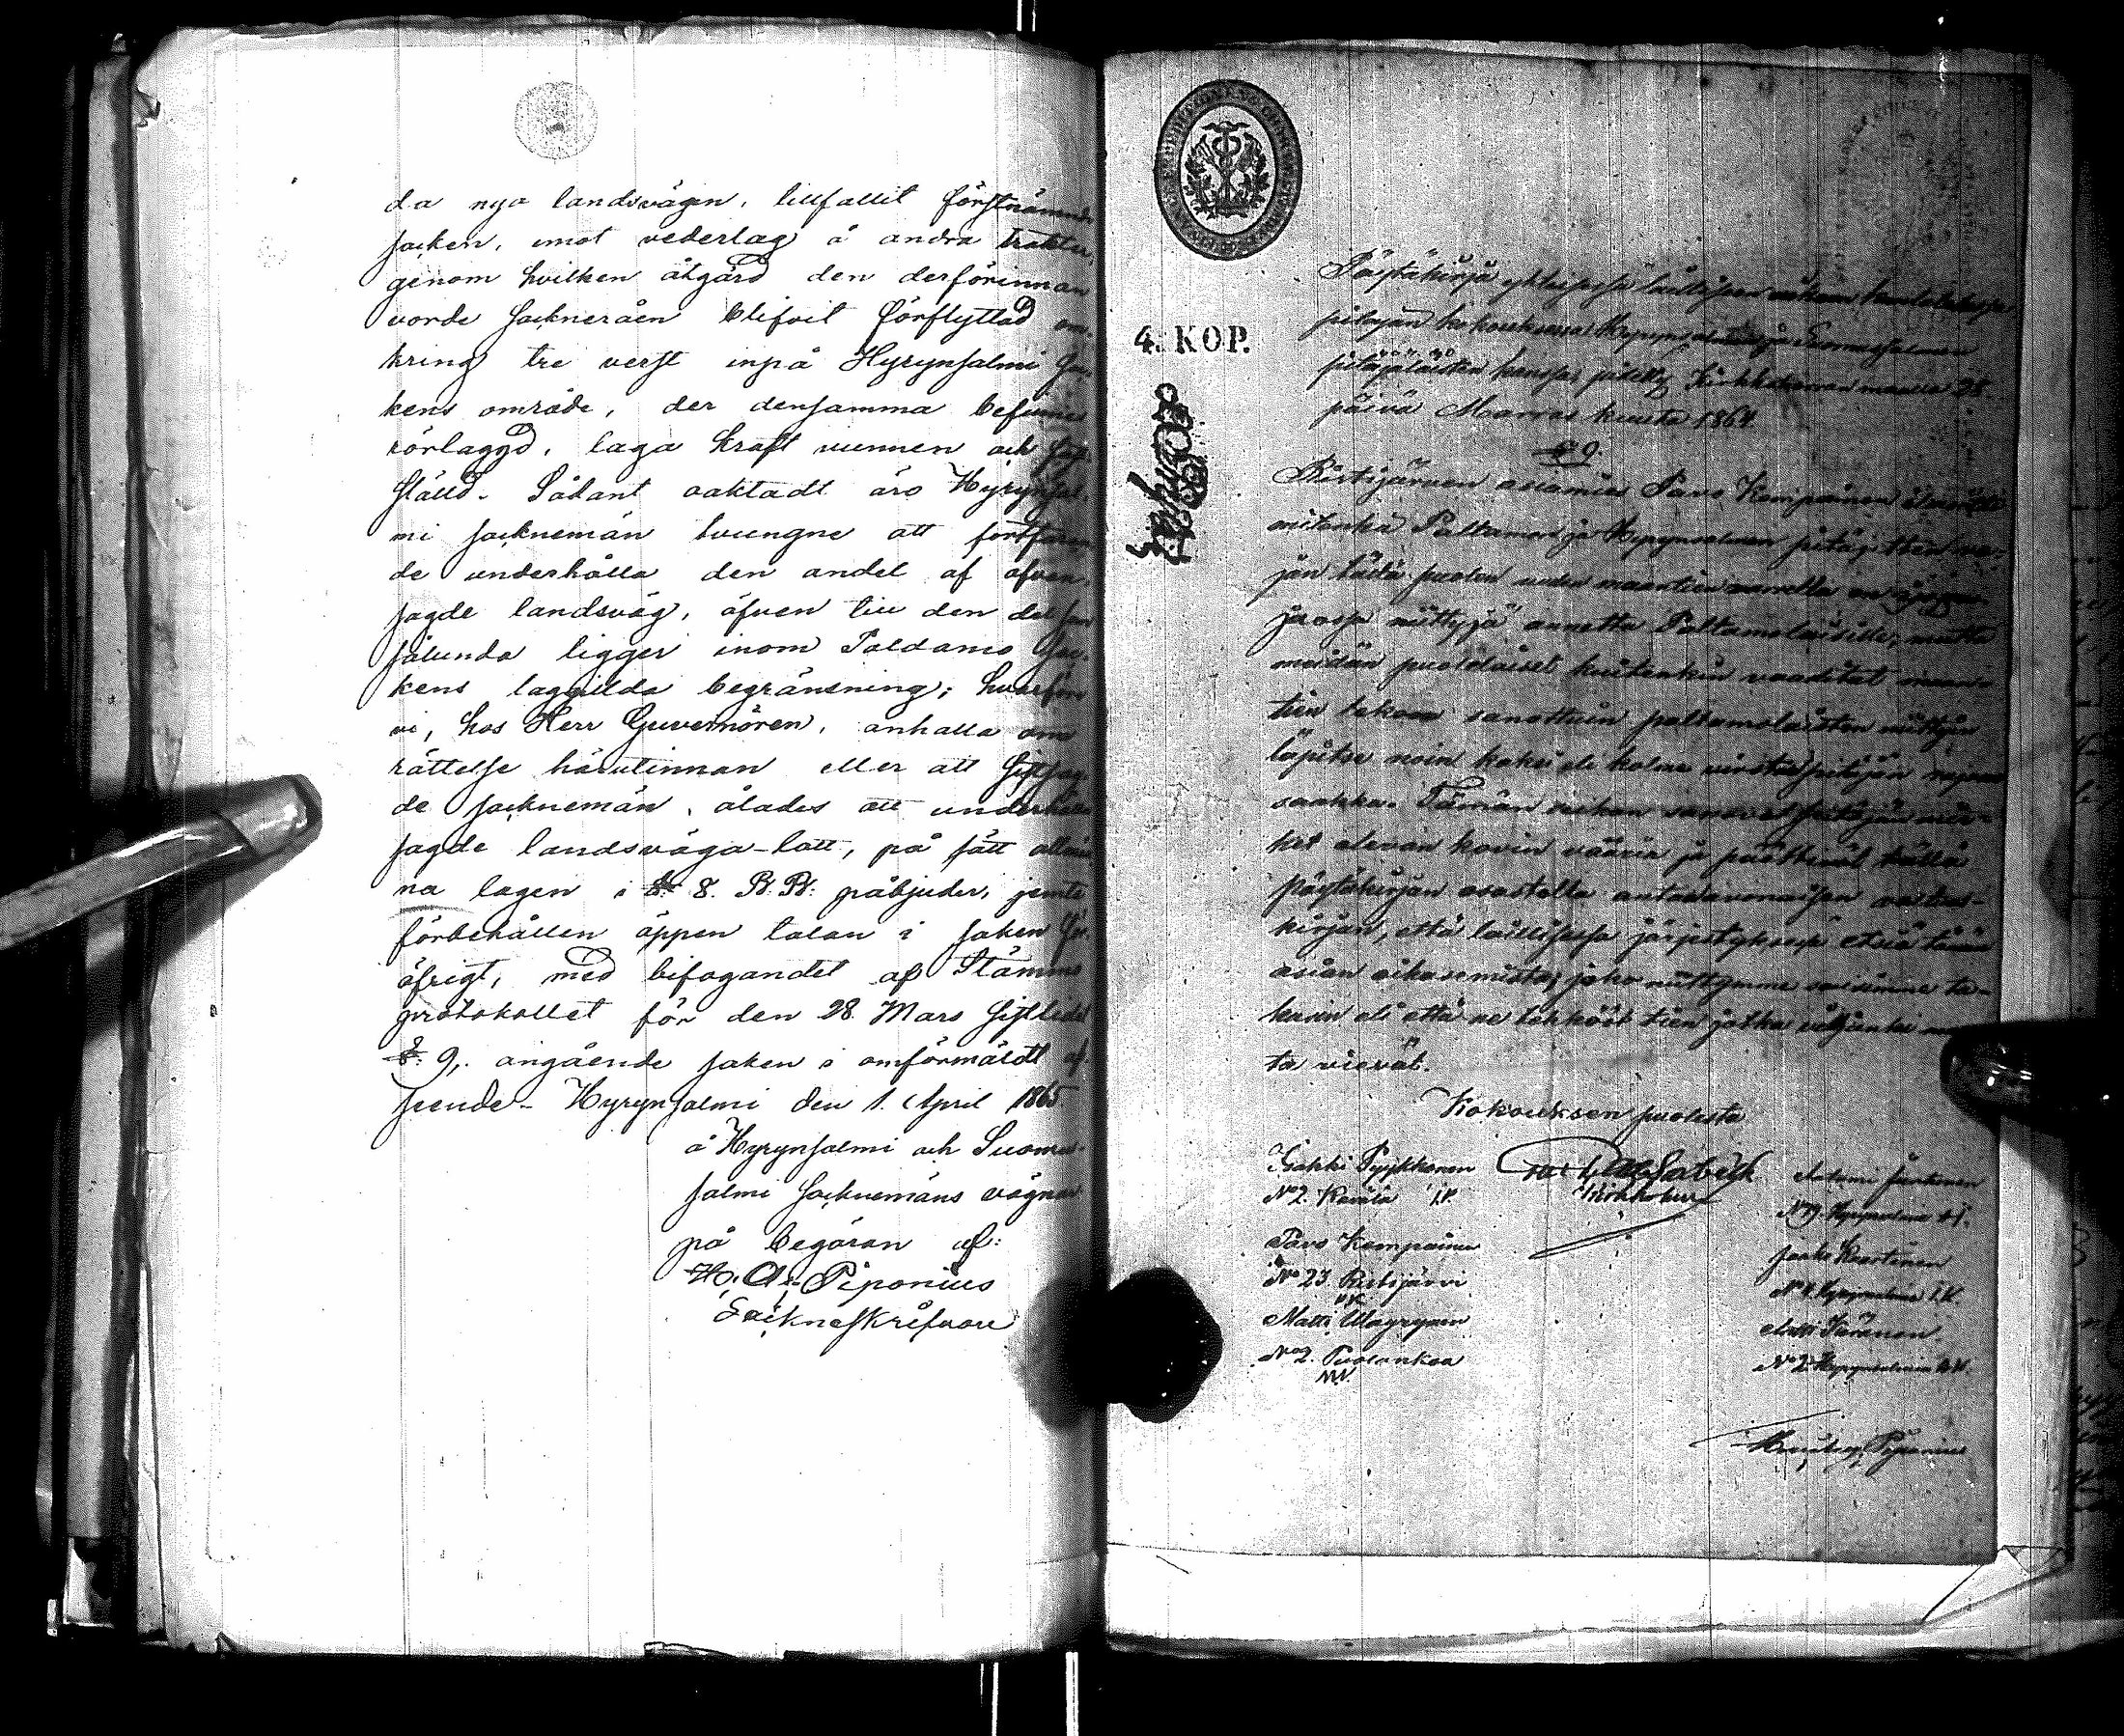 da nya landsvägen, tillfallit förstnämnde
socken, imot vederlag å andra trakter,
genom hvilken åtgärd den derförinnan
vorde sockneråen blifvit förflyttad om-
kring tre verst inpå Hyrynsalmi soc-
kens område, der densamma befinnes
rörlaggd, laga kraft vunnen och fast-
ställd. Sådant oaktadt äro Hyrynsal-
mi socknemän tvungne att fortfaran-
de underhålla den andel af ofvan-
sagde landsväg, äfven till den del som
sålunda ligger inom Paldamo soc-
kens laggilda begränsning; hvarföre
vi, hos Herr Guvernören, anhålla om
rättelse härutinnan eller att sistsag-
de socknemän, ålades att underhålla
sagde landsväga-lott, på sätt allmän-
na lagen i § 8. B.B. påbjuder, jemte
förbehållen öppen talan i saken för
öfrigt, med bifogandet af Stämmo
protokollet för den 28. Mars sistledit
§ 9,. angående saken i omförmäldt af-
seende - Hyrynsalmi den 1. April 1865.
å Hyrynsalmi och Suomus-
salmi socknemäns vägnar
på begäran af:
H. A. Piponius
Sockneskrifvare
4. KOP.
Pöytäkirja yhteisessä laillisen
pitäjän kokouksessa Hyrynsalmen ja Suomussalmen
pitäjäläisten kanssa pidetty Kirkkoherran maalla 28
päivä Marras kuuta 1864
§ 9.
Ristijärven asiamies Pavo Kempainen
mitenkä Paltamon ja Hyrynsalmen pitäjitten ra-
jän tästä puolen uuden maantien varrella on
jaossa niittyjä annettu Paltamolaisille, mutta
meidän puolölaiset kuitenkin vaaditat maan-
tien tekoon sanottuin paltamolaisten niittyin
läpitse noin kaksi eli kolme virstaa pitäjän rajan
saakka. Tämän seikan sanovat pitäjän mie-
het olevan kovin väärin ja päättivät tällä
pöytäkirjan osastolla antaa
kirjan, että laillisessa järjestyksessä etsiä tässä
asian oikasemista; joko niittymme saisimme ta-
kasin eli että ne tehkööt tien jotka viljankin
ta vievät.
Kokouksen puolesta
Jaakki Pyykkonen
No 2. Ranua
Kirkkoherra
Pavo Kempainen
No 23 Ristijärvi
Matti Väyrynen
No 2. Puolanka
Antti
No 9. Hyrynsalmi
Jaako
No 4. Hyrynsalmi
Antti
No 2 Hyrynsalmi
Piponius